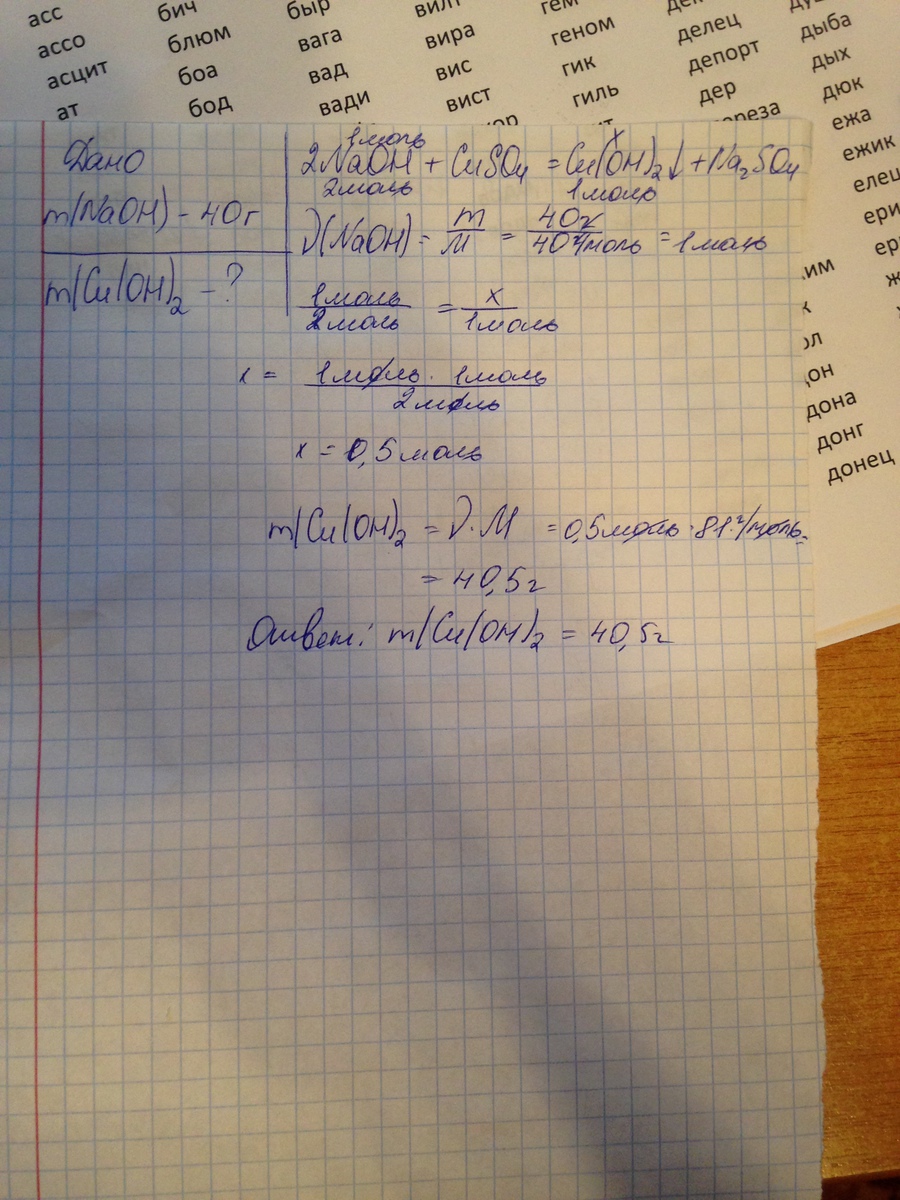 асс бич быр вилт гем
ассо блюм вага вира геном делец дыба
асцит боа вад вис гик депорт дых
ат бод вади вист гиль дер дюк
ежа
ежик
дон
дона
донг
донец
Дано
m(NaOH) - 40г
m(Cu(OH)2 - ?
1моль х
2NaOH + CuSO4 = Cu(OH)2↓ + Na2SO4
2моль 1моль
ν(NaOH) = m/M = 40г/40г/моль = 1моль
1моль/2моль = x/1моль
x = 1моль · 1моль/2моль
x = 0,5моль
m(Cu(OH)2 = ν·M = 0,5моль · 81г/моль =
= 40,5г
Ответ: m(Cu(OH)2 = 40,5г